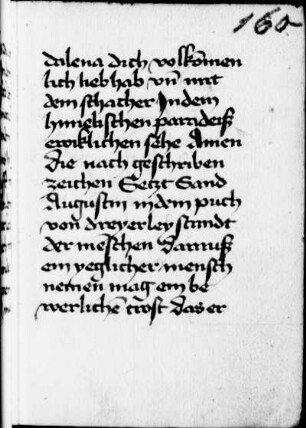 160
dalena dich volkōmen
lich liebhab vn̄ mit
dem schacher Jn dem
himelischen paradeiß
ewiklichen sehe Amen
Die nach geschriben
zeichen Setzt Sand
Augustin in dem puch
von dreyerley standt
der mēschen Darauß
ein yeglicher mensch
nemen̄ mag ein be
werlichē trost das er